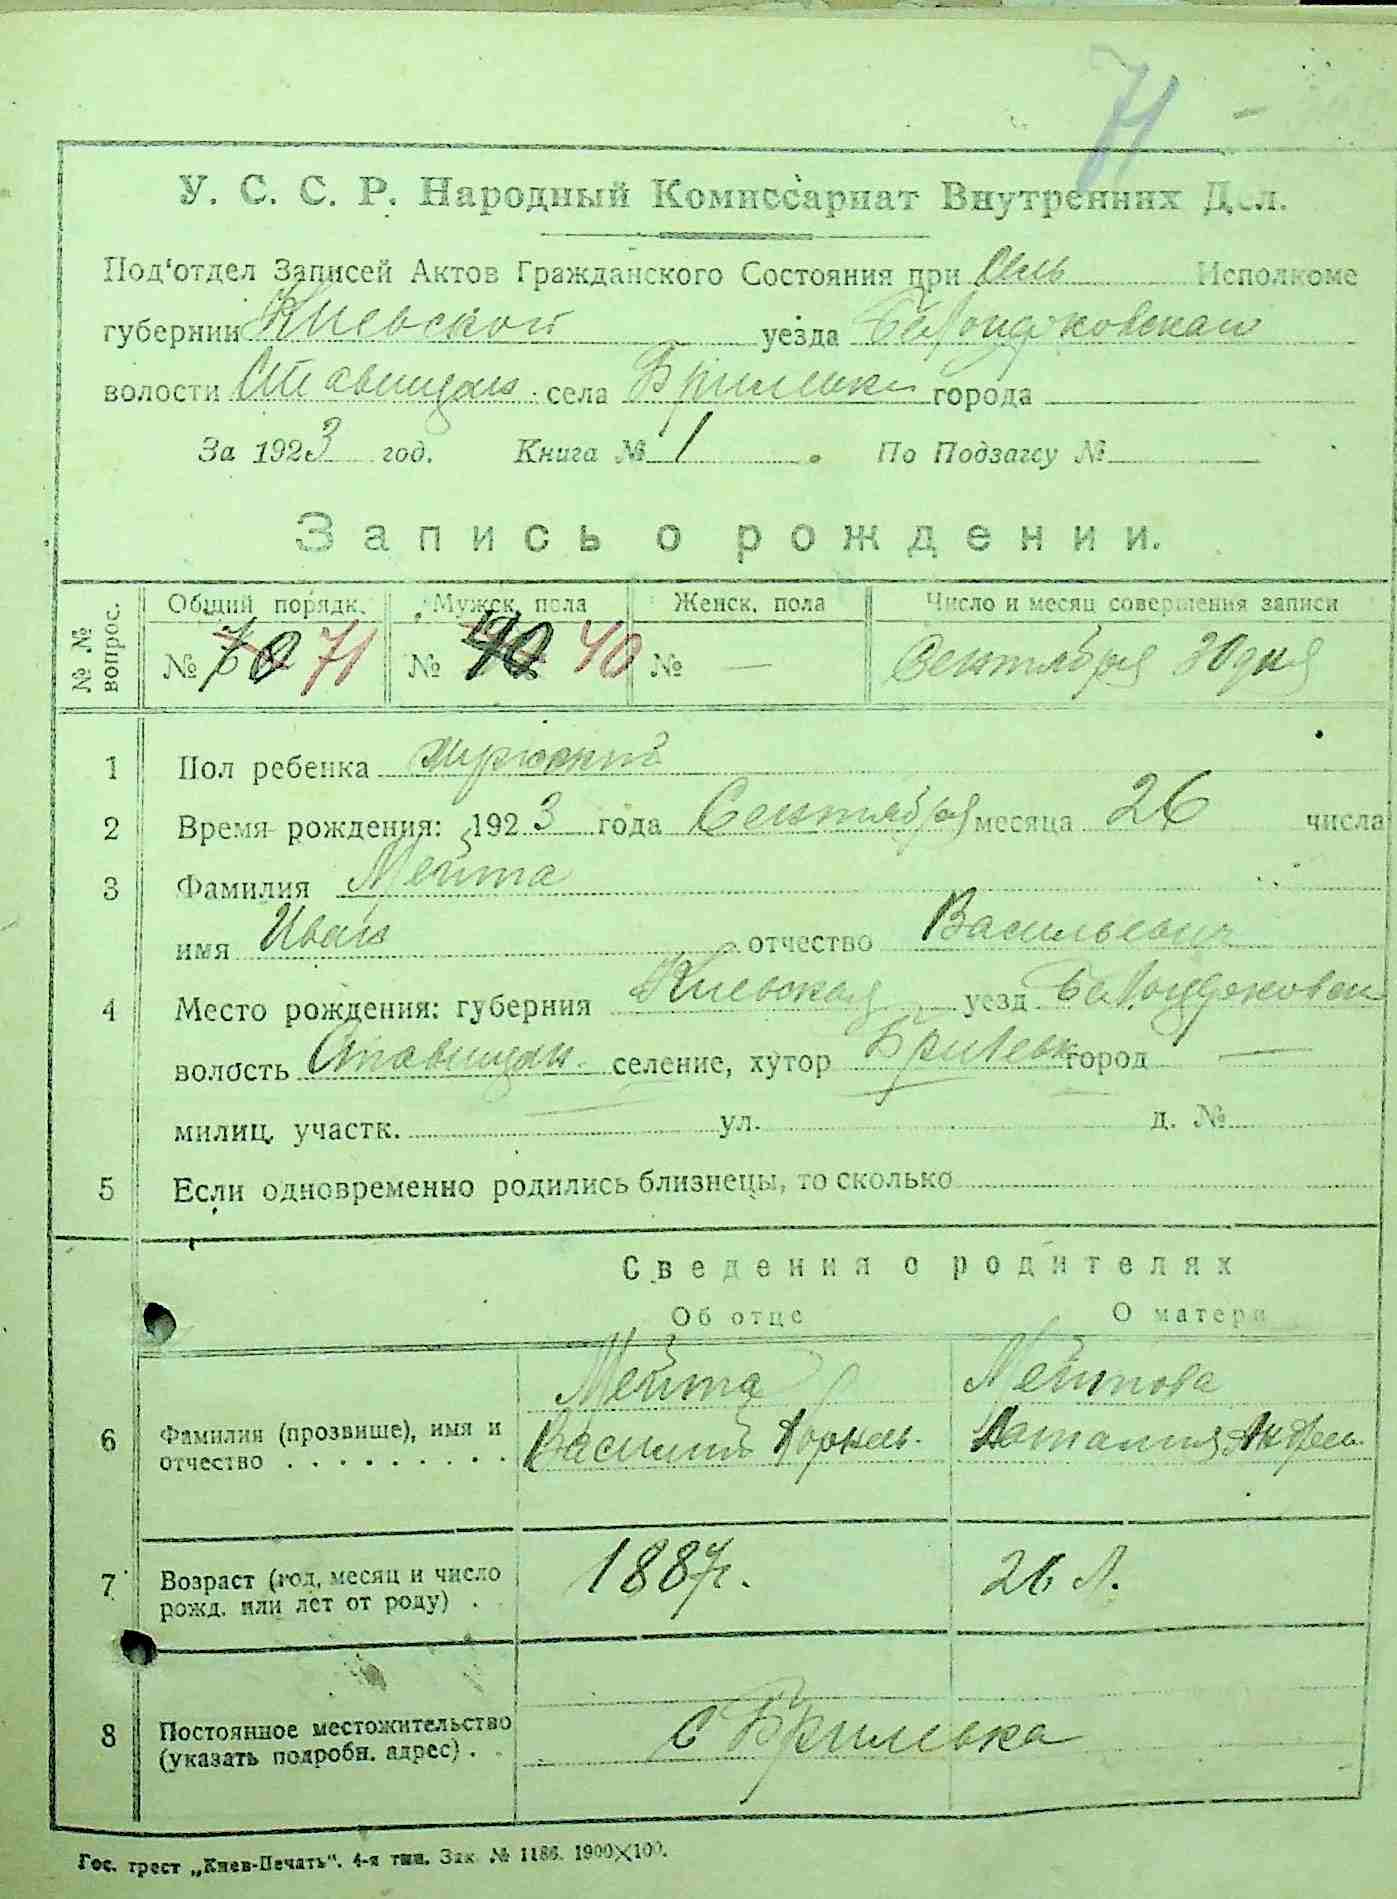 71
У. С. С. Р. Народный Комиссариат Внутренних Дел.
Под'отдел Записей Актов Гражданского Состояния при Сель Исполкоме
губернии Киевской уезда Белоцерковском
волости Ставищан. села Брилевки города
За 1923 год. Книга № 1. По Подзагсу №
Запись о рождении.
№ № вопрос. Общий порядк. Мужск. пола Женск. пола Число и месяц совершения записи
№ 70 71 № 40 40 № — Сентября 30 дня
1 Пол ребенка мужской
2 Время рождения: 1923 года Сентября месяца 26 числа
3 Фамилия Мейта
имя Иван отчество Васильевич
4 Место рождения: губерния Киевская уезд Белоцерковск
волость Ставищан. селение, хутор Брилевк город —
милиц. участк. ул. д. №
5 Если одновременно родились близнецы, то сколько
Сведения о родителях
Об отце О матери
6 Фамилия (прозвище), имя и отчество
Мейта
Василий Корнеев.
Мейтова
Наталия Андреев.
7 Возраст (год, месяц и число рожд. или лет от роду) .
1887г.
26 л.
8 Постоянное местожительство
(указать подробн. адрес) . .
с Брилевка
Гос. трест „Киев-Печать". 4-я тип. Зак. № 1186. 1900×100.